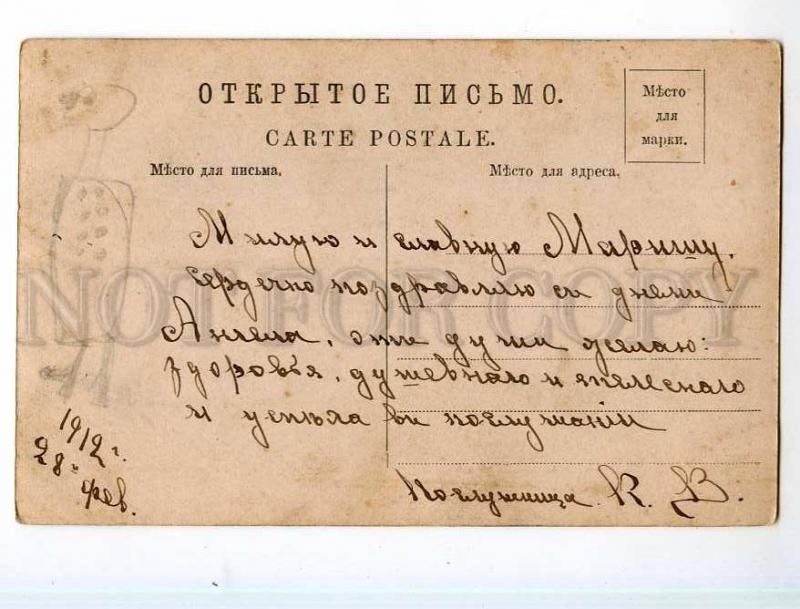 ОТКРЫТОЕ ПИСЬМО.
CARTE POSTALE.
Мѣсто
для
марки.
Мѣсто для письма.
Мѣсто для адреса.
Милую и славную Маришу,
сердечно поздравляю съ днемъ
Ангела, отъ души желаю:
здоровья, душевнаго и тѣлеснаго
и успѣха въ послушаніи
Послушница К. В.
1912 г.
28 фев.
NOT FOR COPY